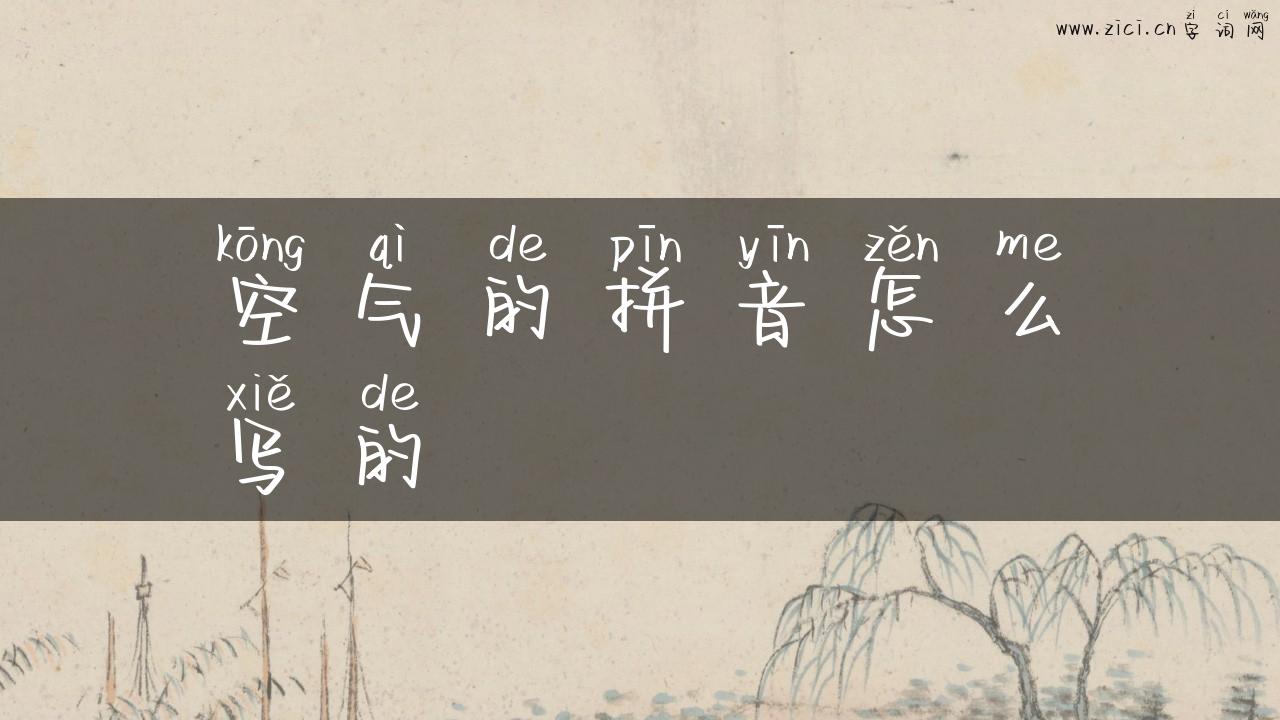 zì cí wǎng
www.zici.cn 字 词 网
kōng qì de pīn yīn zěn me
空 气 的 拼 音 怎 么
xiě de
写 的